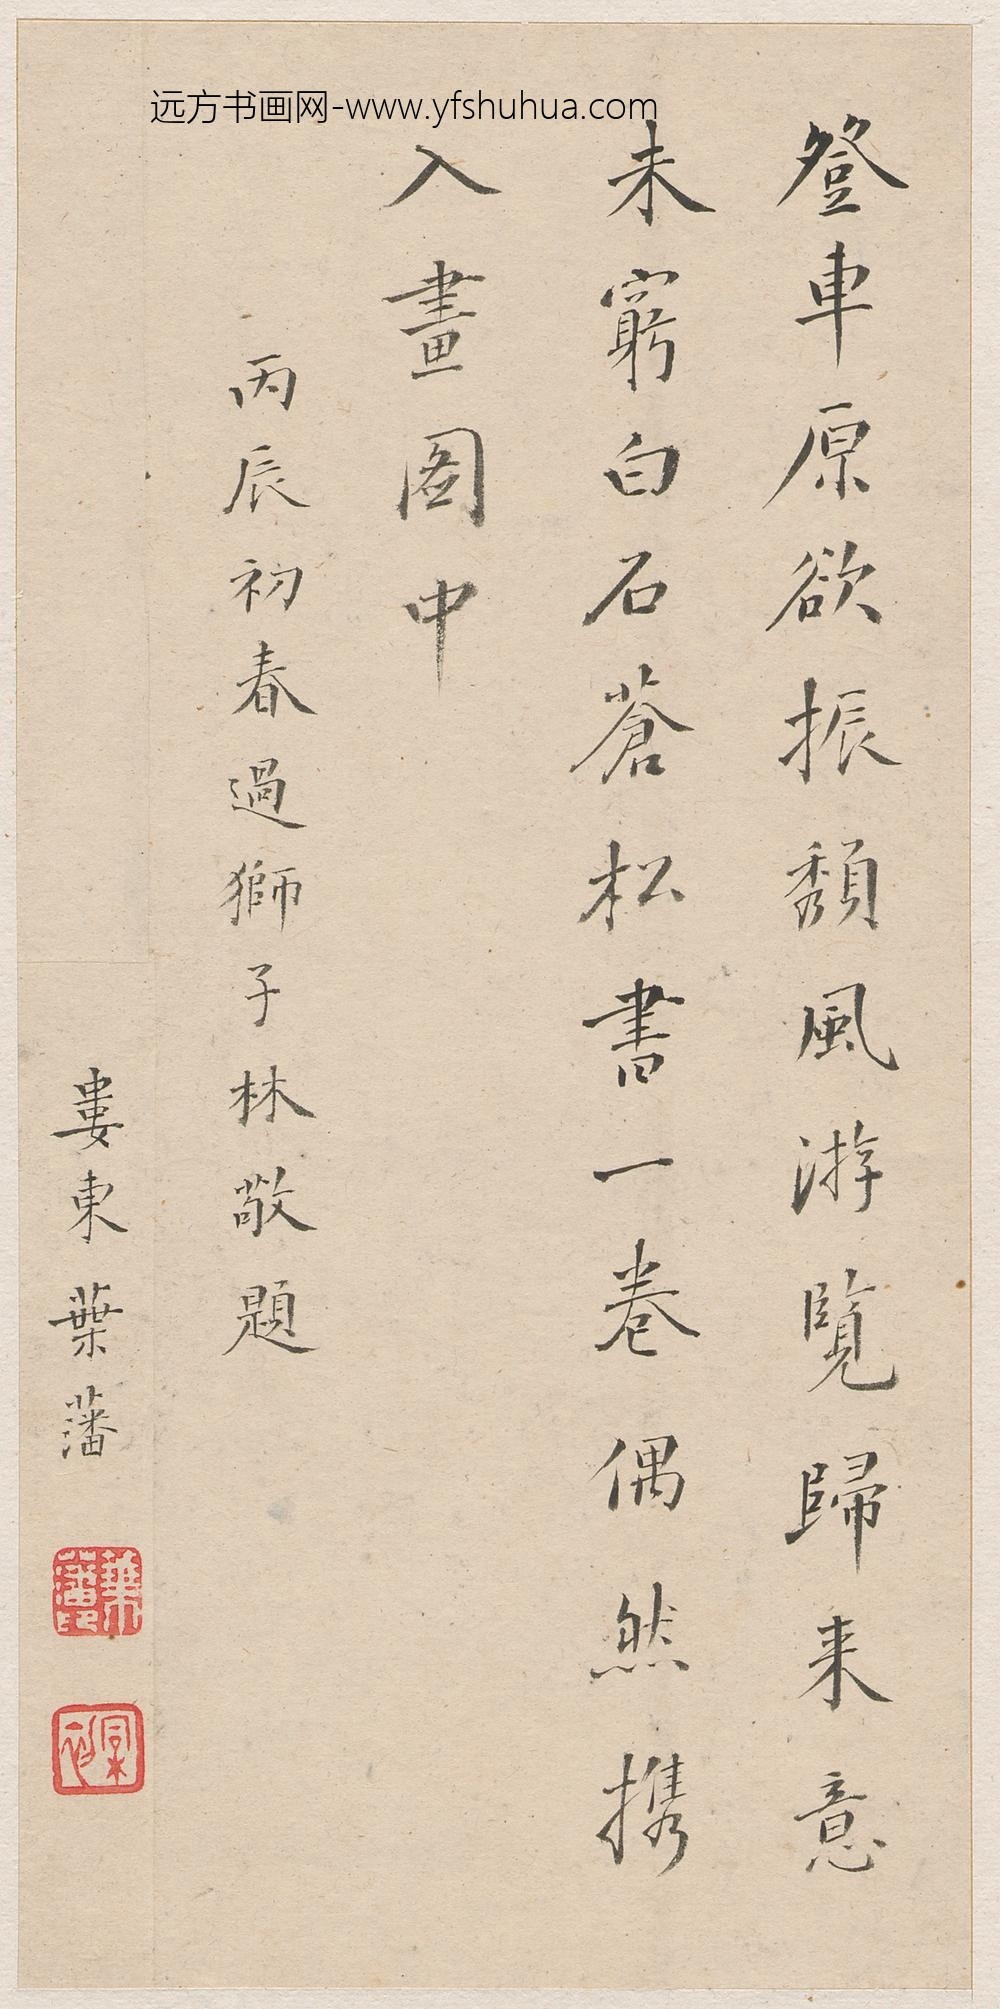 远方书画网-www.yfshuhua.com
登車原欲振頹風游覽歸来意
未窮白石蒼松書一卷偶然携
入畫圖中
丙辰初春過獅子林敬題
婁東葉藩
葉藩印